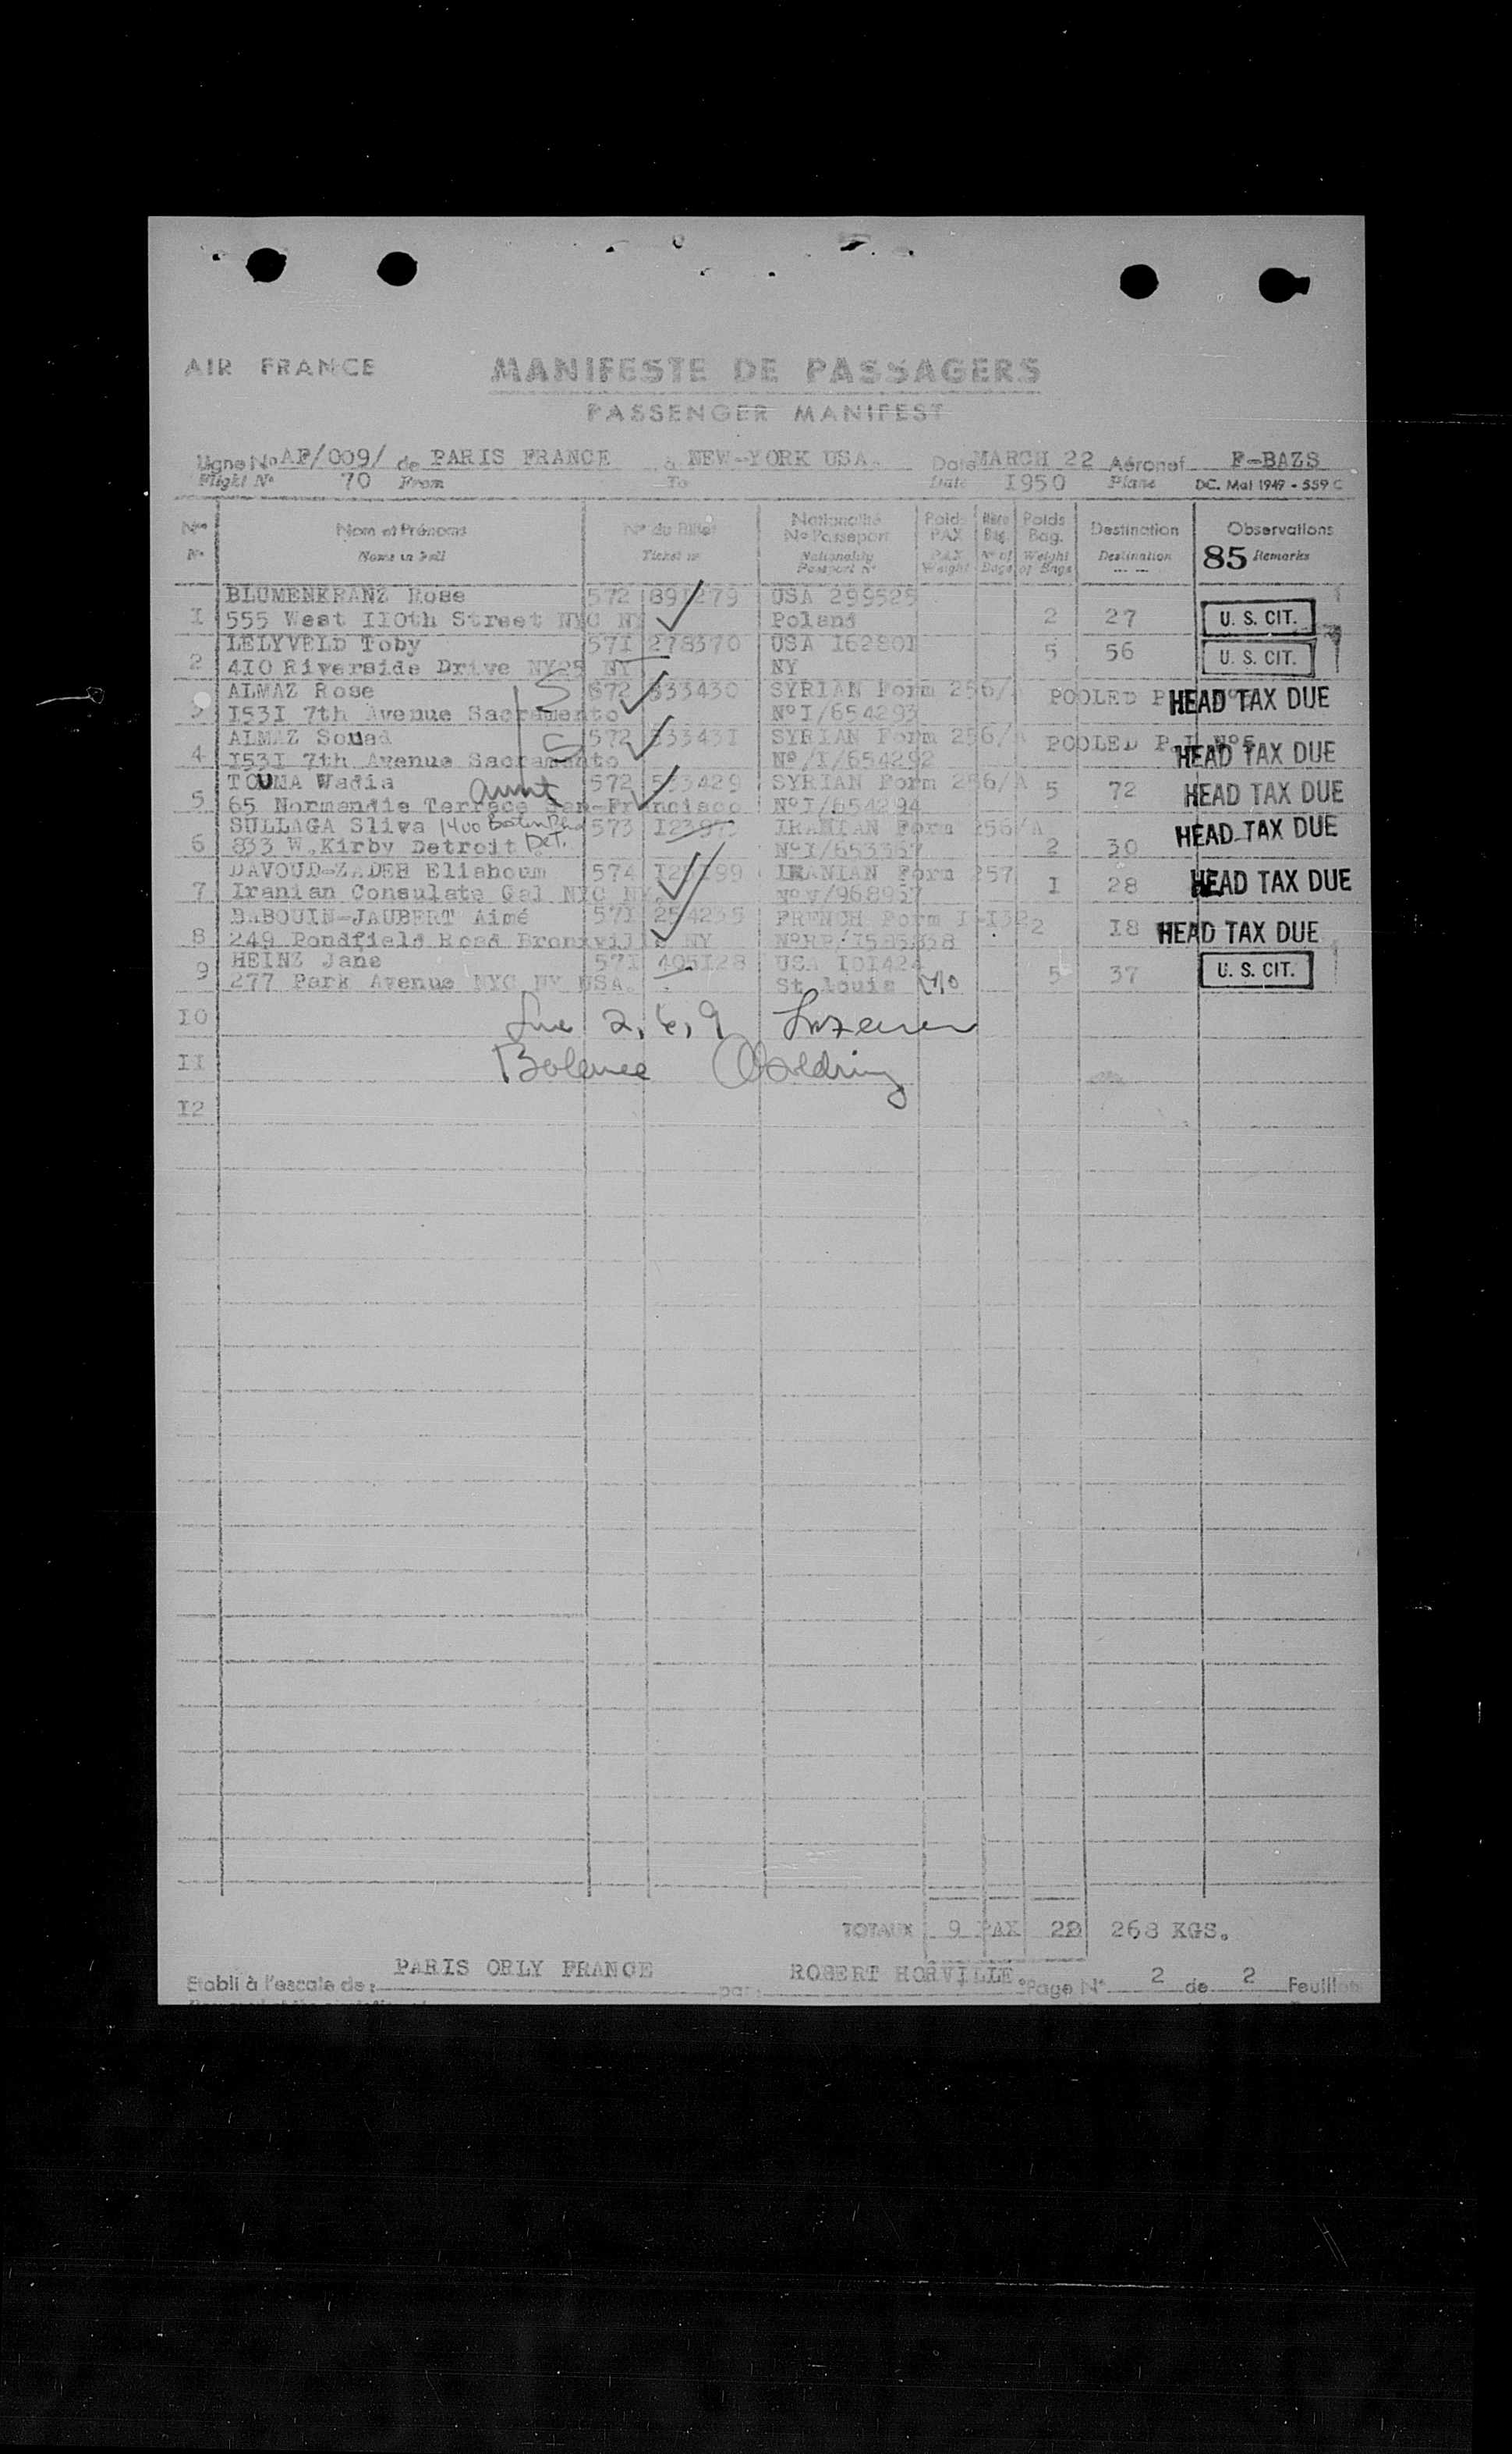 AIR FRANCE MANIFESTE DE PASSAGERS
PASSENGER MANIFEST
Ligne No AF/009/ de PARIS FRANCE à NEW-YORK USA. Date MARCH 22 Aéronef F-BAZS
Flight No 70 From To Date 1950 Plane DC. Mai 1949 - 559 C
Nos Nom et Prénoms No du Billet Nationalité No Passeport Poids PAX Nbre Bag. Poids Bag. Destination Observations
No Names in Full Ticket nr Nationality Passport No PAX Weight No of Bags Weight of Bags Destination 85 Remarks
BLUMENKRANZ Rose 572 891279 USA 299525
1 555 West 110th Street NYC NY Poland 2 27 U. S. CIT.
LELYVELD Toby 571 278370 USA 162801
2 410 Riverside Drive NY25 NY NY 5 56 U. S. CIT.
ALMAZ Rose S 572 533430 SYRIAN Form 256/ POOLED HEAD TAX DUE
3 1531 7th Avenue Sacramento No I/654293
ALMAZ Souad S 572 533431 SYRIAN Form 256/A POOLED P.I. No5
4 1531 7th Avenue Sacramento No/I/654292 HEAD TAX DUE
TOUMA Wadia Aunt 572 533429 SYRIAN Form 256/A
5 65 Normandie Terrace San-Francisco No I/654294 5 72 HEAD TAX DUE
SULLAGA Sliva 1400 Boston Blvd 573 IRANIAN Form 256/A
6 833 W.Kirby Detroit Det. No I/653367 2 30 HEAD TAX DUE
DAVOUD-ZADEH Eliahoum 574 IRANIAN Form 257
7 Iranian Consulate Gal NYC NY. No V/968957 1 28 HEAD TAX DUE
BABOUIN-JAUBERT Aimé 571 254235 FRENCH Form I-132
8 249 Pondfield Road Bronxville NY 2 18 HEAD TAX DUE
HEINZ Jane 571 405128 USA 101424
9 277 Park Avenue NYC NY USA. St louis Mo 5 37 U. S. CIT.
10 Line 2, 6, 9
11 Balance
12
TOTAUX 9 PAX 22 268 KGS.
Etabli à l'escale de: PARIS ORLY FRANCE par: ROBERT HORVILLE. Page No 2 de 2 Feuillets